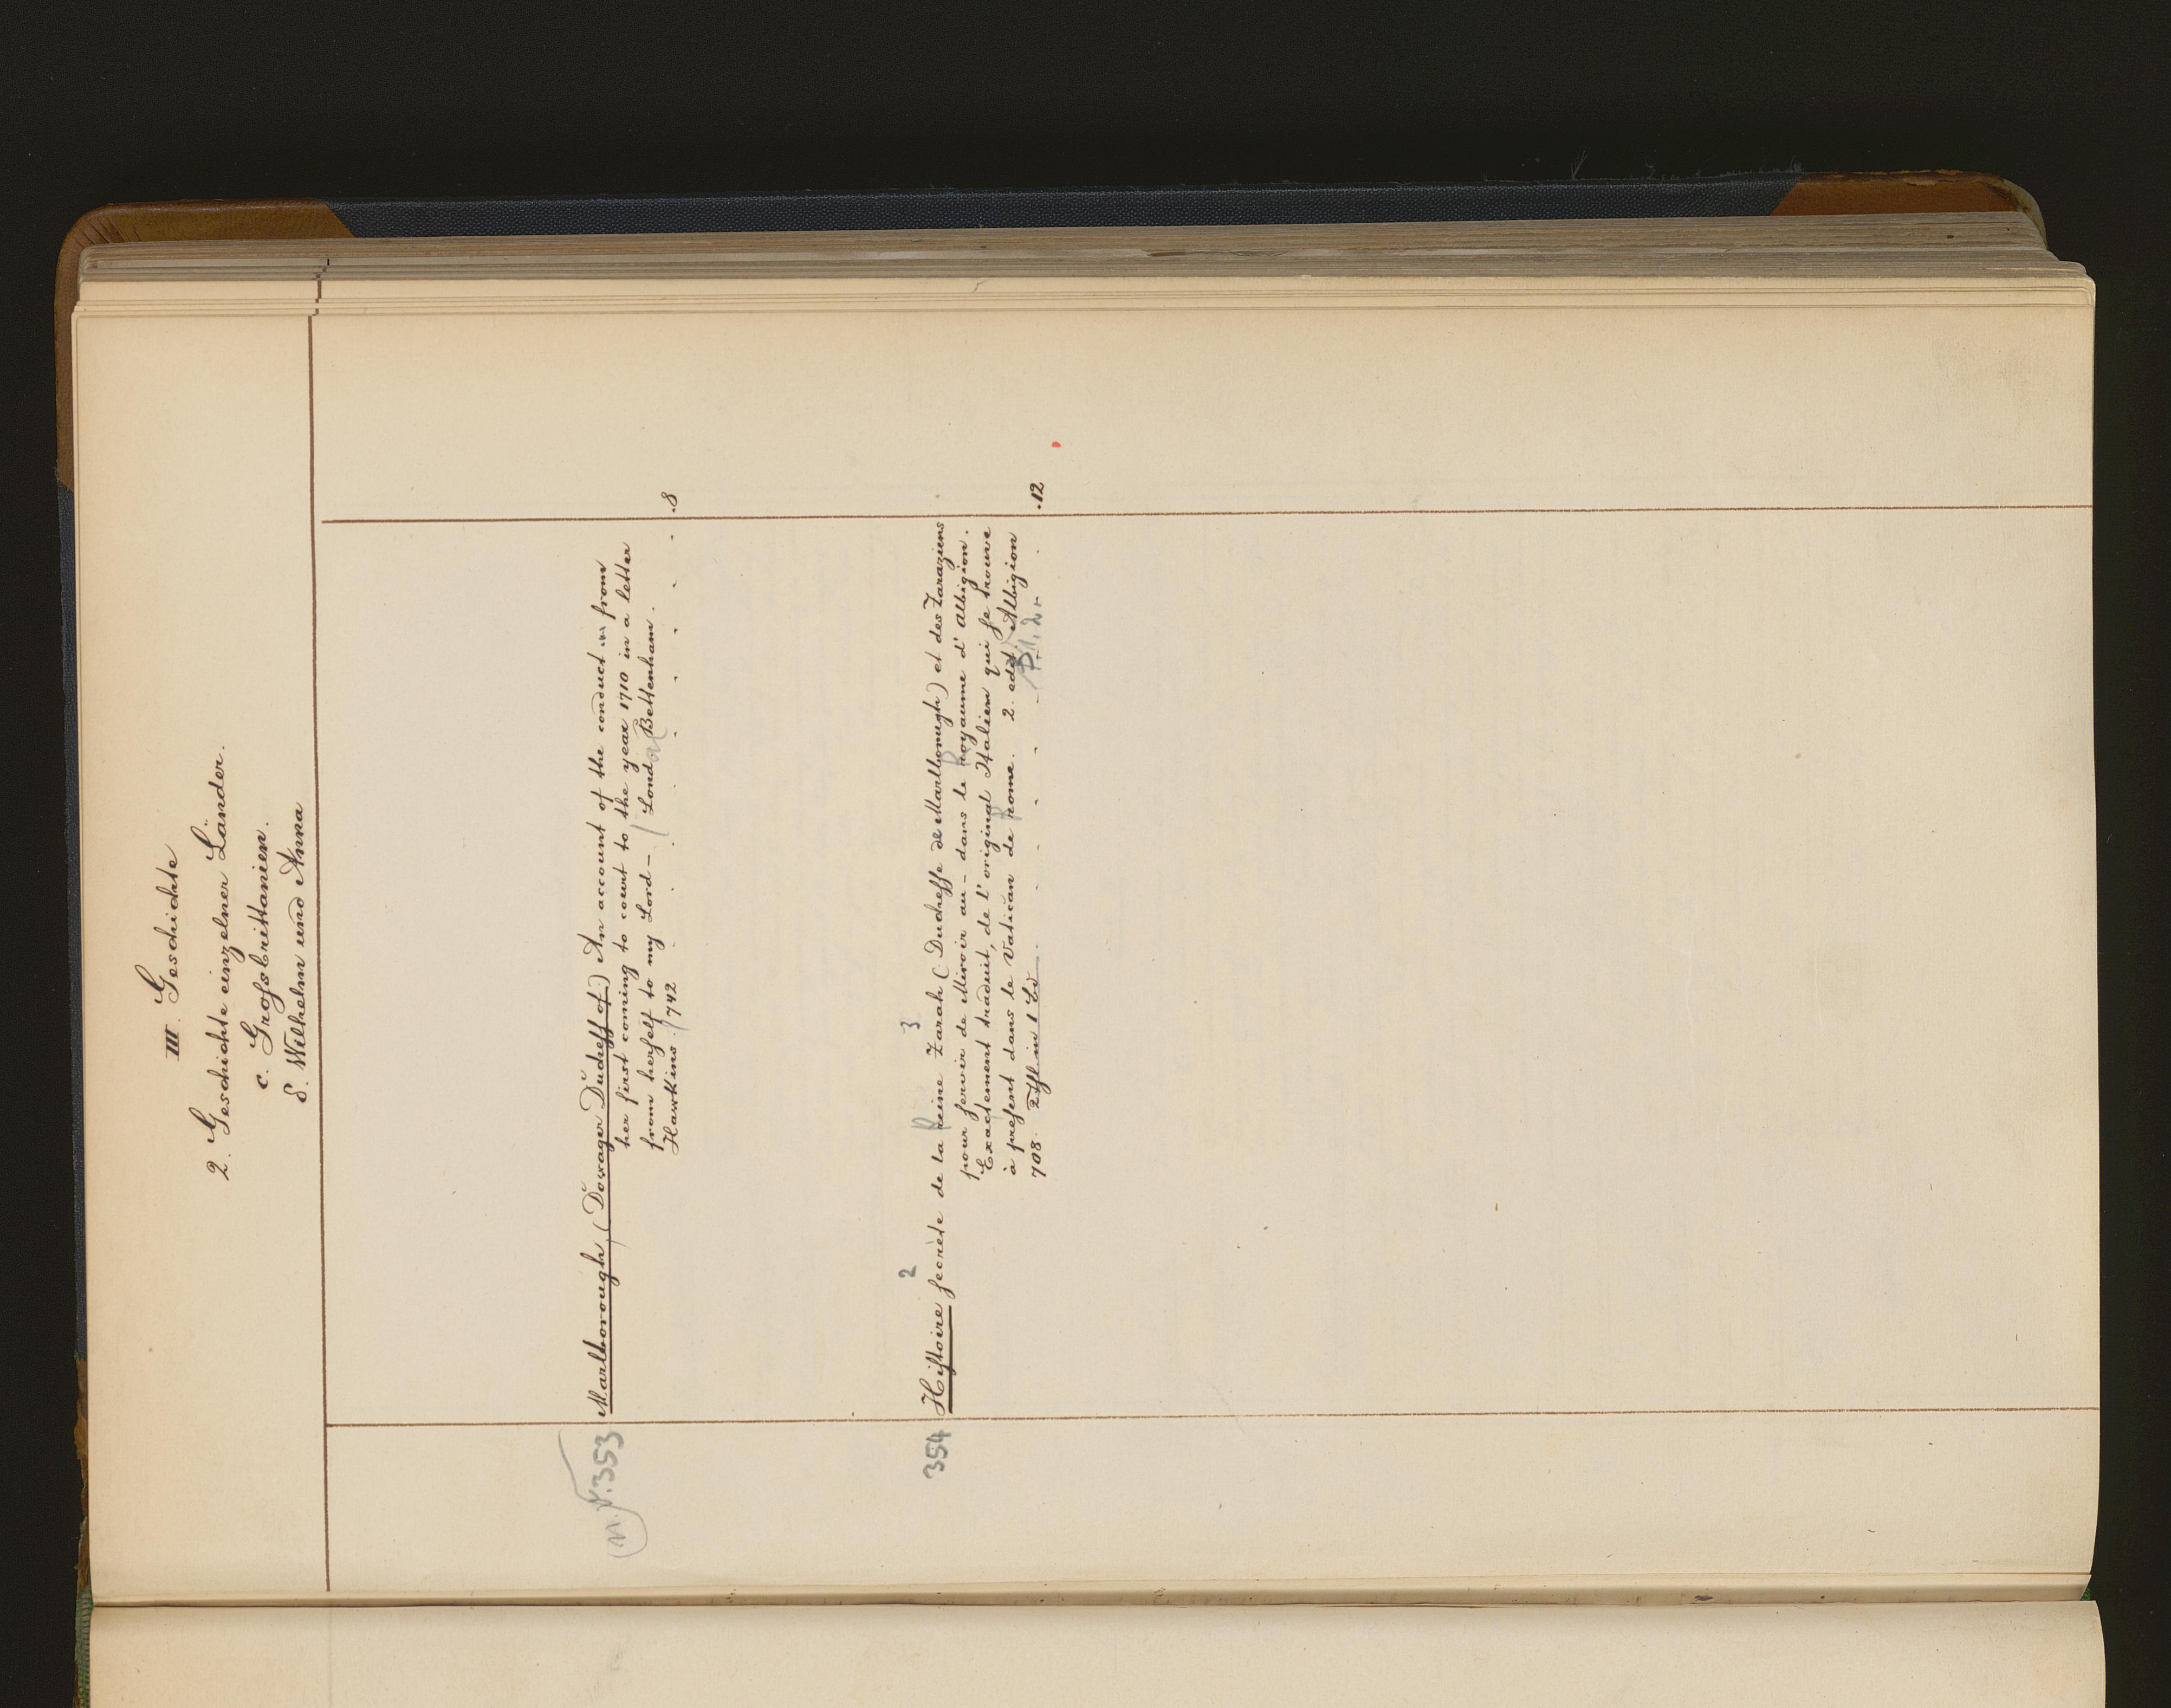 III. Geschichte
2. Geschichte einzelner Länder.
c. Grofsbrittanien.
δ. Wilhelm und Anna
353 Marlborough, (Dowager Dutchefs of) An account of the conduct from
her first coming to court to the year 1710 in a letter
from herfelf to my Lord – Lond Bettenham.
Hawkins. 1742 .8
354 Hiftoire fecrète de la reine Zarah (Ducheffe de Marlborough) et des Zaraziens
2 3
pour fervir de Miroir au – dans le royaume d'Albigion.
Exactement traduit, de l'original Italien qui fe trouve
à prefent dans le Vatican de Rome. 2. edit Albigion
708. 2 Thl in 1 Bd .12